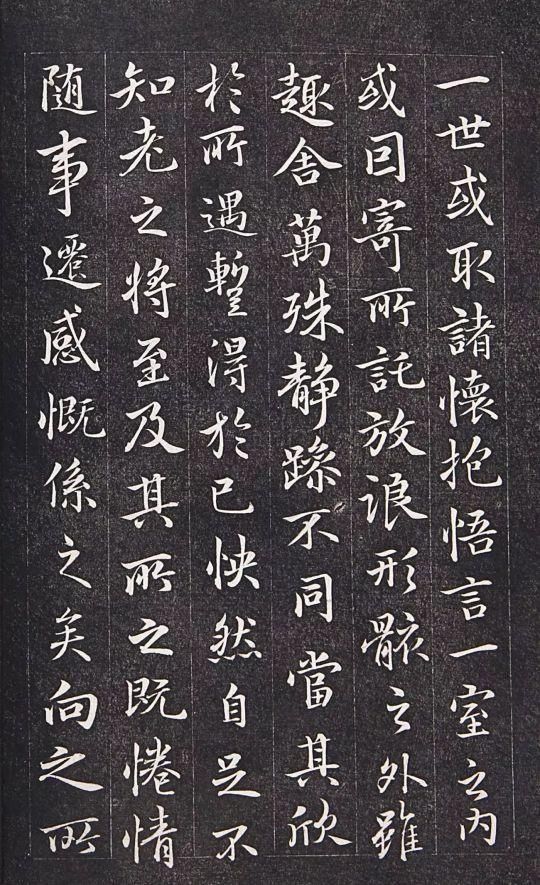 一世或取諸懷抱悟言一室之內
或因寄所託放浪形骸之外雖
趣舍萬殊静躁不同當其欣
於所遇蹔得於己怏然自足不
知老之将至及其所之既惓情
随事遷感慨係之矣向之所